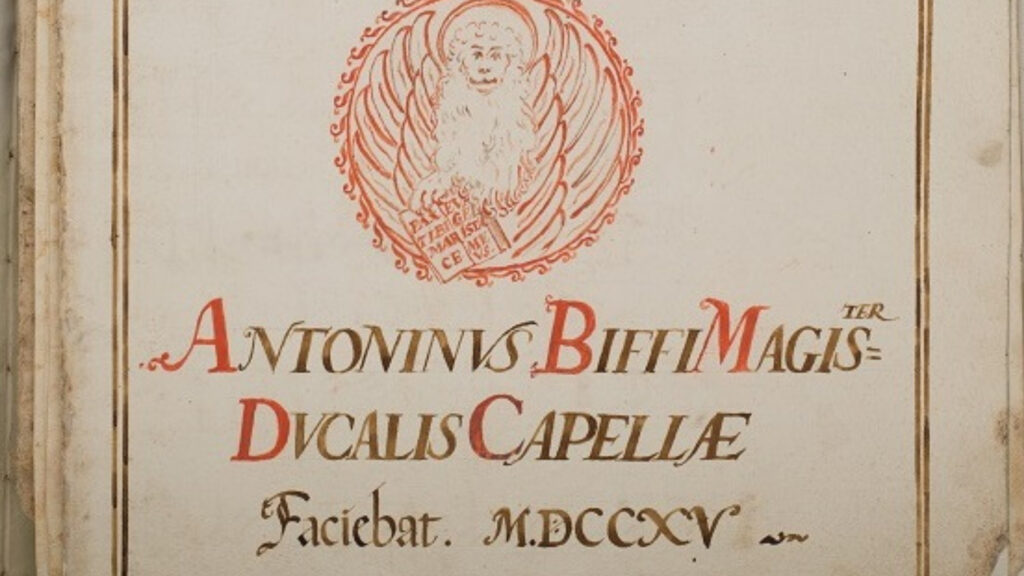 PAX
TIBI
MAR
CE
EVS
ANTONINVS BIFFI MAGIS=TER
DVCALIS CAPELLÆ
Faciebat. M.DCCXV